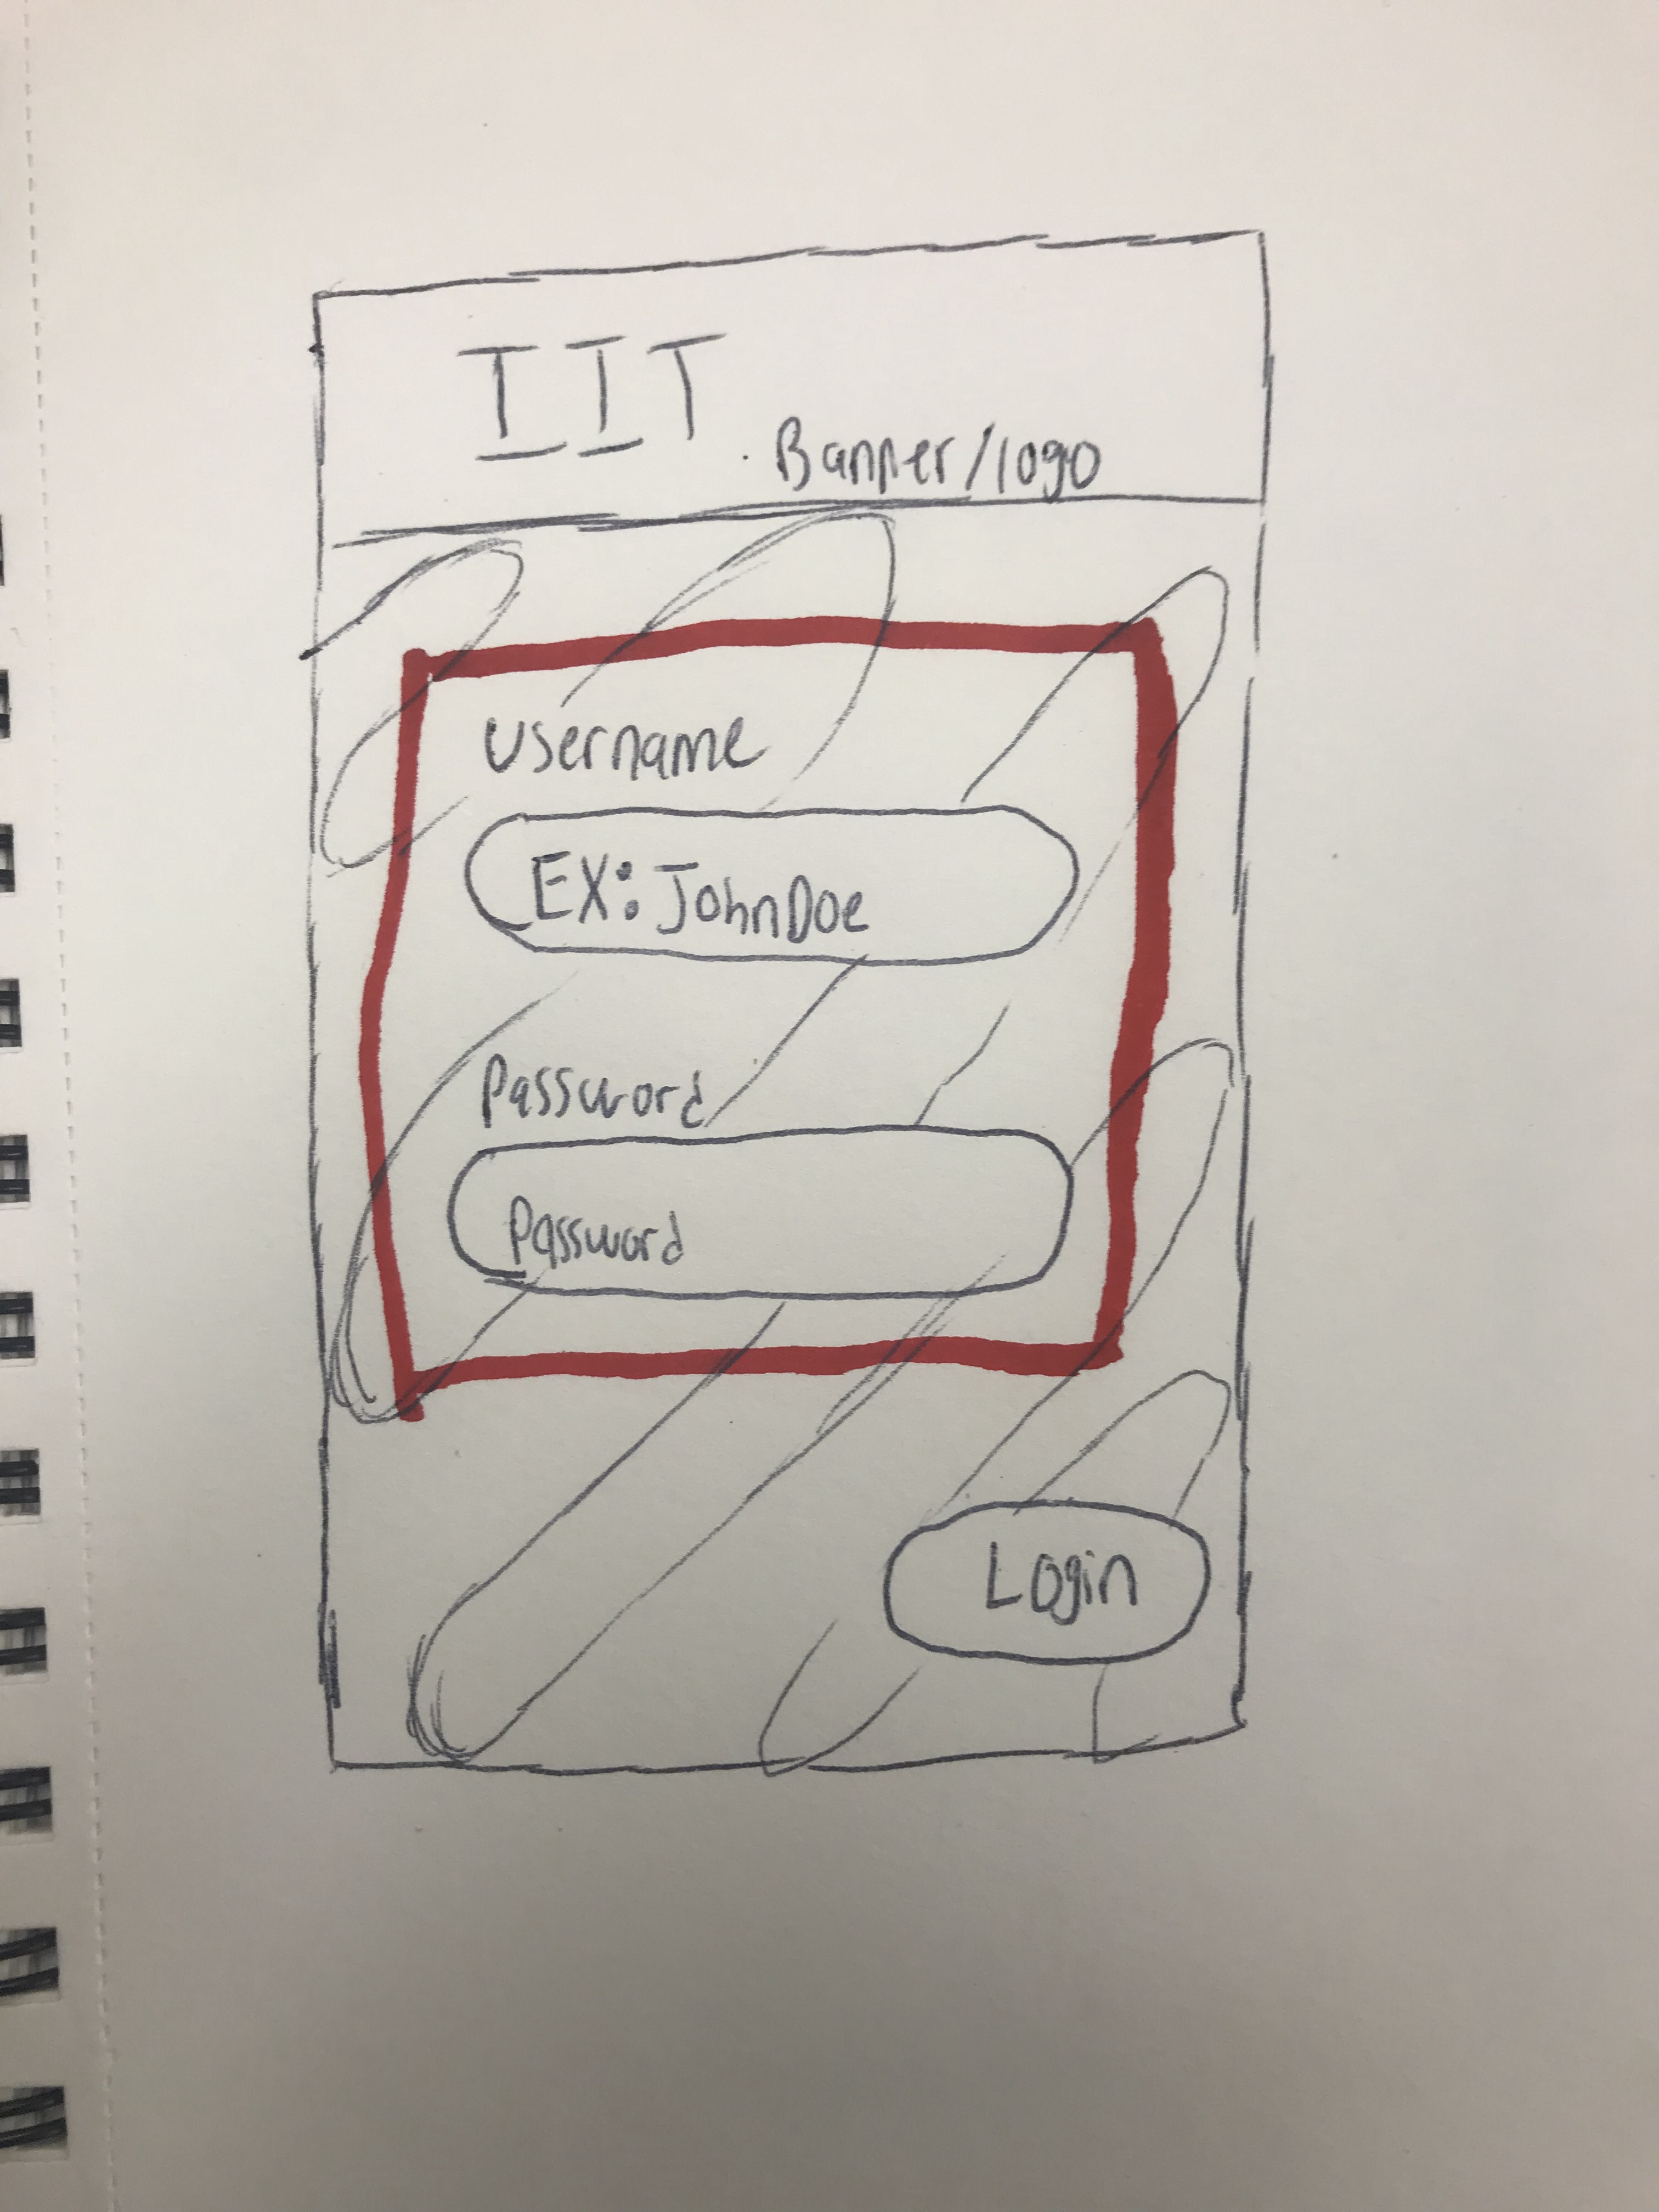 IIT
Banner/logo
Username
EX: JohnDoe
Password
Password
Login